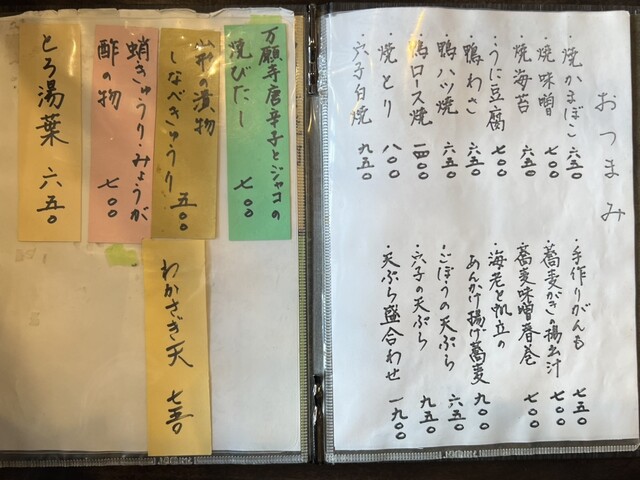 おつまみ
・焼かまぼこ 六五〇
・焼味噌 七〇〇
・焼海苔 五〇〇
・うに豆腐 七〇〇
・鴨わさ 六五〇
・鴨ハツ焼 六五〇
・鴨ロース焼 一四〇〇
・焼とり 八〇〇
・穴子白焼 九五〇
・手作りがんも 七五〇
・蕎麦がきの揚出汁 七〇〇
・蕎麦味噌春巻 七〇〇
・海老と帆立の
あんかけ揚げ蕎麦 九〇〇
・ごぼうの天ぷら 六五〇
・穴子の天ぷら 九五〇
・天ぷら盛合わせ 一九〇〇
万願寺唐辛子とジャコの
焼びたし 七〇〇
山形の漬物
しなべきゅうり 五〇〇
蛸きゅうり・みょうが
酢の物 七〇〇
とろ湯葉 六五〇
わかさぎ天 七五〇